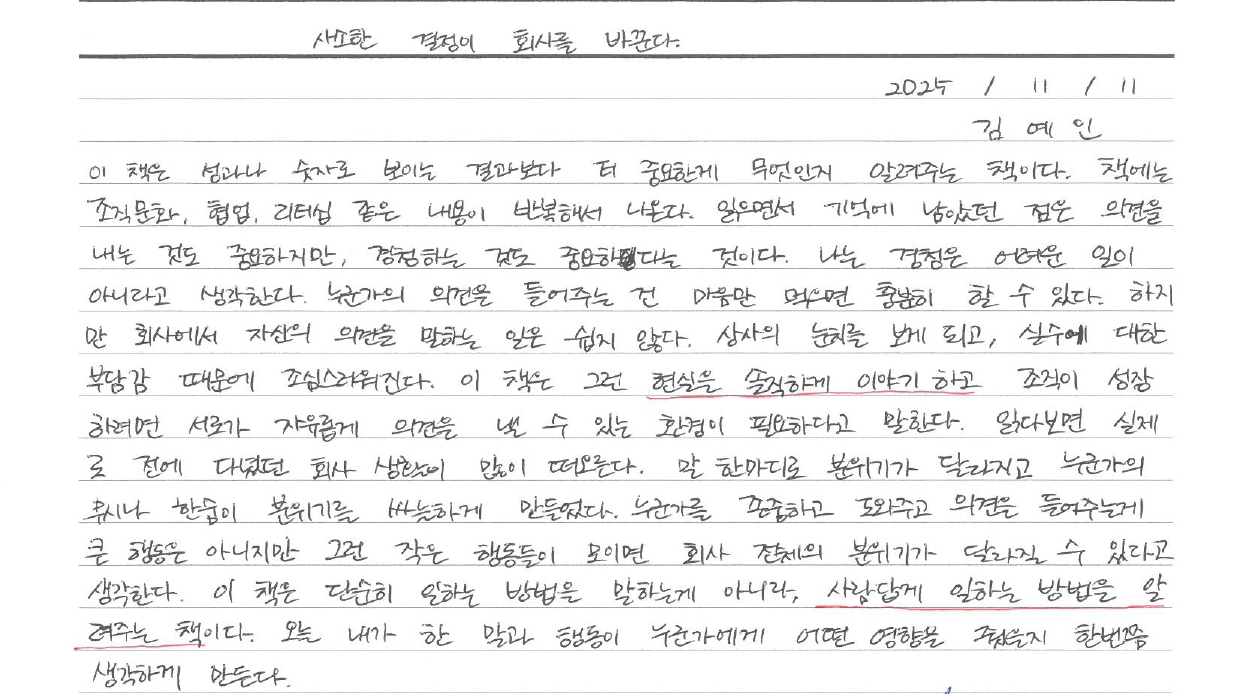 사소한 결정이 회사를 바꾼다.
2025 / 11 / 11
김예인
이 책은 성과나 숫자로 보이는 결과보다 더 중요한게 무엇인지 알려주는 책이다. 책에는
조직문화, 협업, 리더십 같은 내용이 반복해서 나온다. 읽으면서 기억에 남았던 점은 의견을
내는 것도 중요하지만, 경청하는 것도 중요하다는 것이다. 나는 경청은 어려운 일이
아니라고 생각한다. 누군가의 의견을 들어주는 건 마음만 먹으면 충분히 할 수 있다. 하지
만 회사에서 자신의 의견을 말하는 일은 쉽지 않다. 상사의 눈치를 보게 되고, 실수에 대한
부담감 때문에 조심스러워진다. 이 책은 그런 현실을 솔직하게 이야기 하고 조직이 성장
하려면 서로가 자유롭게 의견을 낼 수 있는 환경이 필요하다고 말한다. 읽다보면 실제
로 전에 다녔던 회사 생활이 많이 떠오른다. 말 한마디로 분위기가 달라지고 누군가의
무시나 한숨이 분위기를 싸늘하게 만들었다. 누군가를 존중하고 도와주고 의견을 들어주는게
큰 행동은 아니지만 그런 작은 행동들이 모이면 회사 전체의 분위기가 달라질 수 있다고
생각한다. 이 책은 단순히 일하는 방법을 말하는게 아니라, 사람답게 일하는 방법을 알
려주는 책이다. 오늘 내가 한 말과 행동이 누군가에게 어떤 영향을 줬을지 한번쯤
생각하게 만든다.